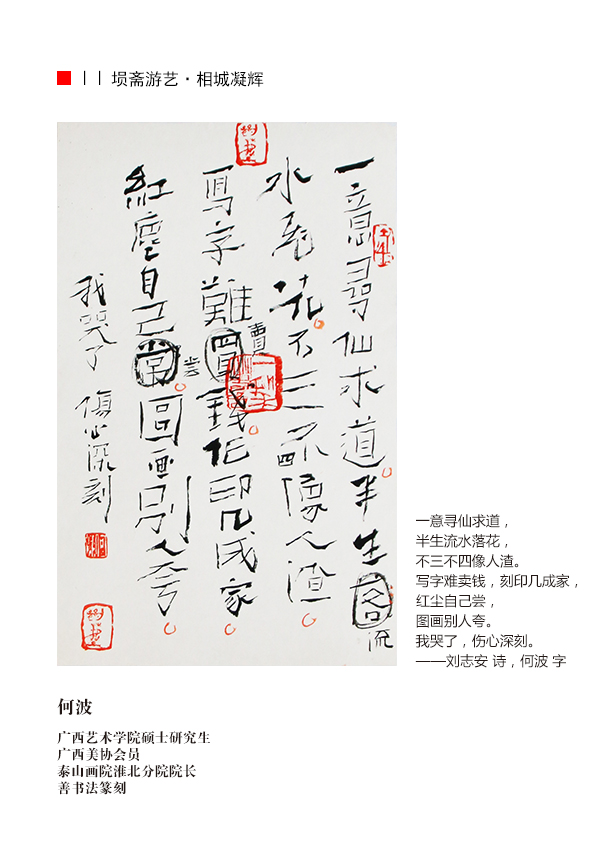 埙斋游艺·相城凝辉
一意尋仙求道半生流
水花不三不四像人渣
寫字難買賣錢印几成家
紅塵自己當嘗圖画别人夸
我哭了 傷心深刻
一意寻仙求道，
半生流水落花，
不三不四像人渣。
写字难卖钱，刻印几成家，
红尘自己尝，
图画别人夸。
我哭了，伤心深刻。
——刘志安 诗，何波 字
何波
广西艺术学院硕士研究生
广西美协会员
泰山画院淮北分院院长
善书法篆刻